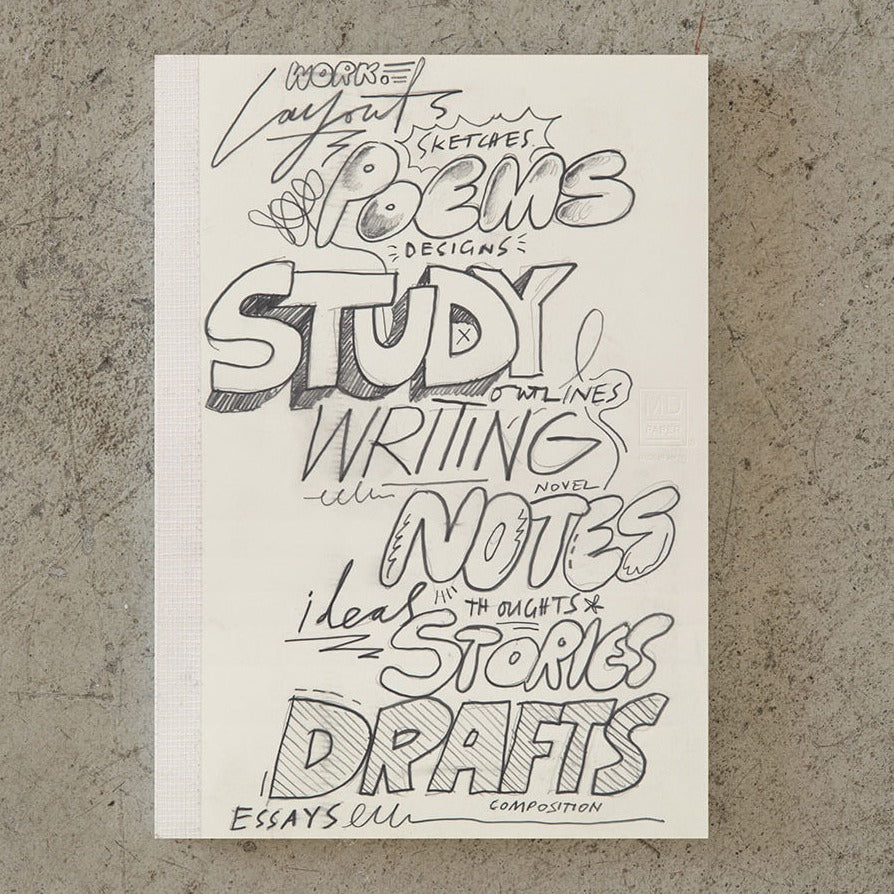 WORK.
Layouts
SKETCHES.
POEMS
DESIGNS
STUDY
OUTLINES
WRITING
MD
PAPER
NOVEL
NOTES
ideas
THOUGHTS*
STORIES
DRAFTS
COMPOSITION
ESSAYS